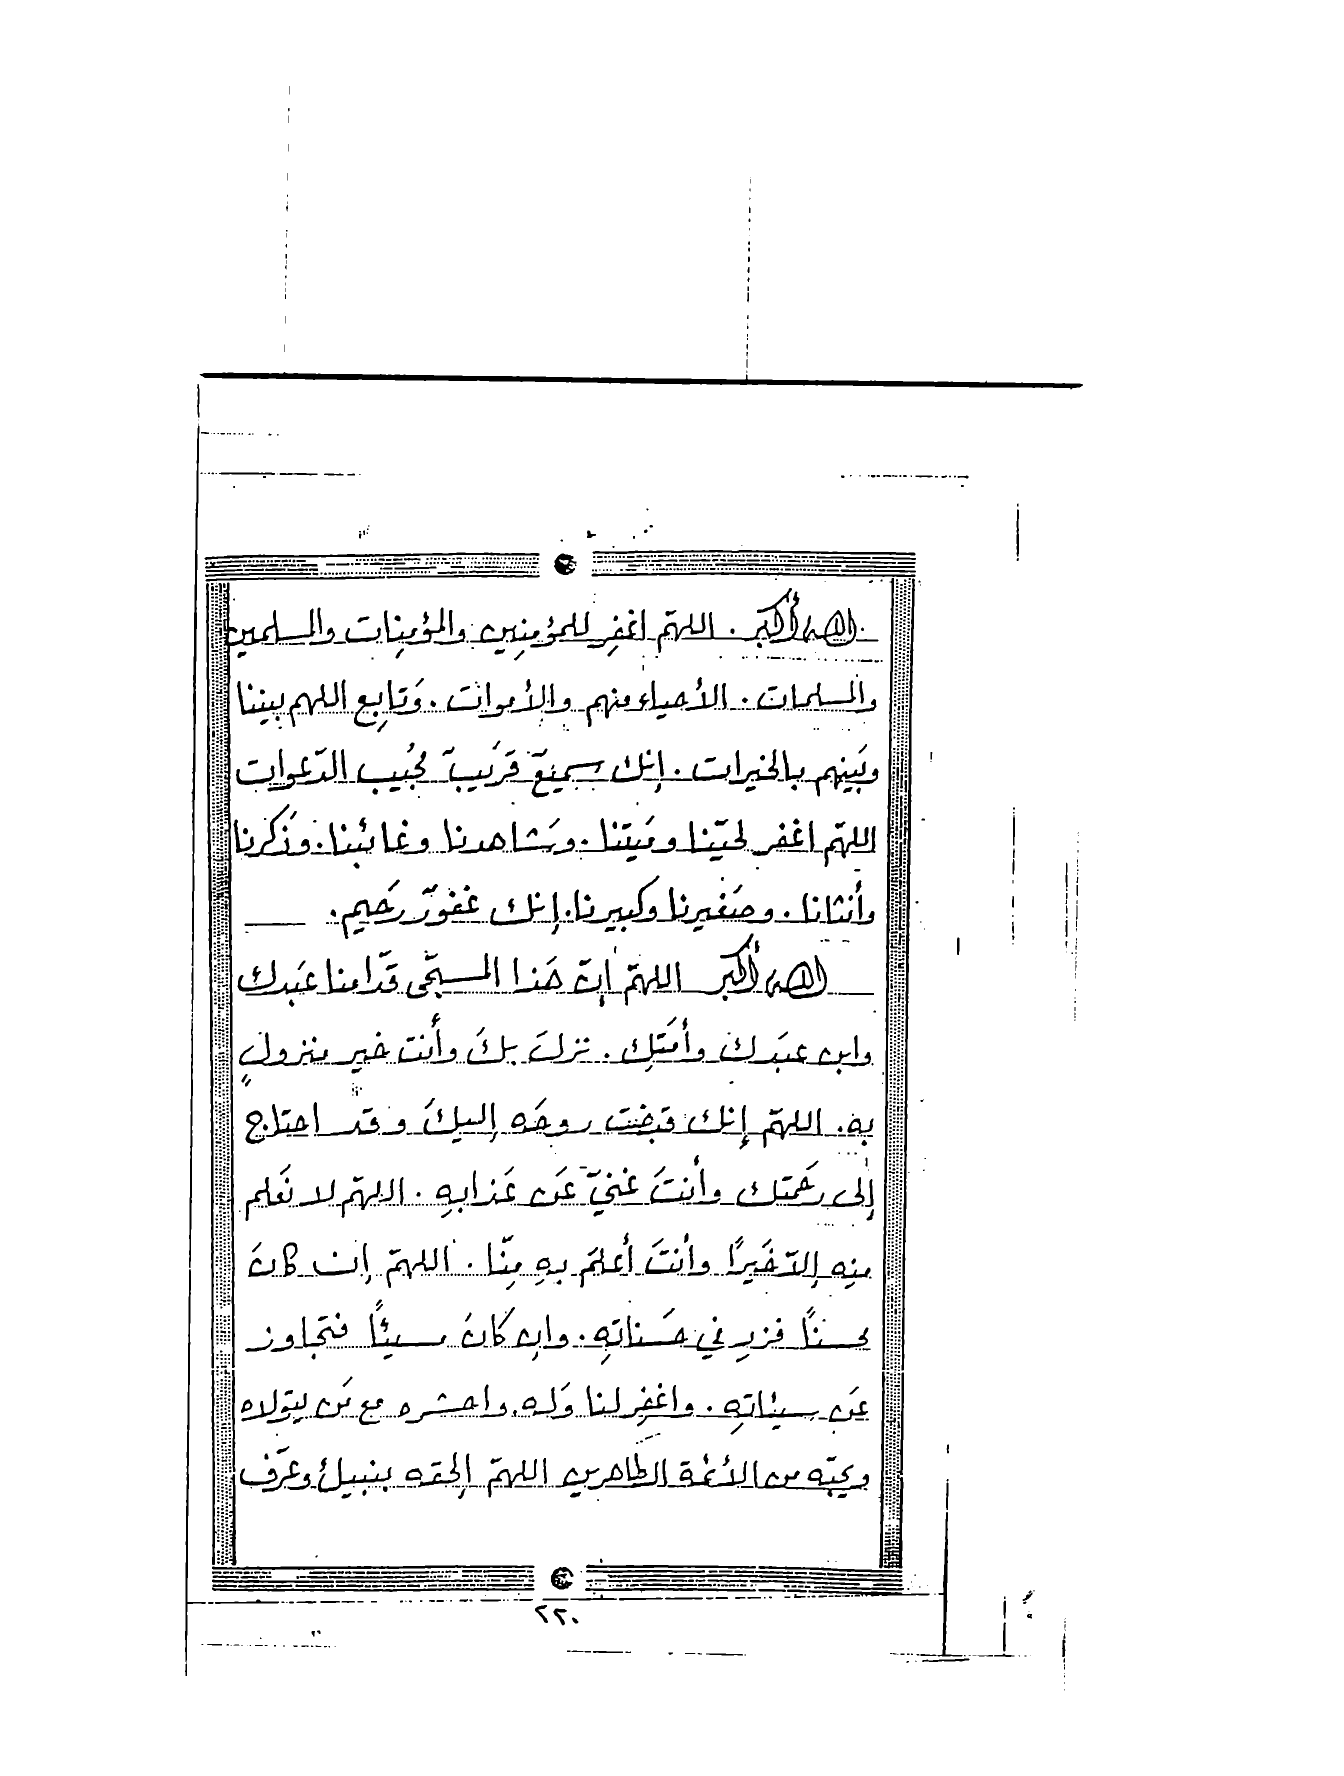 الله أكبر . اللهمّ اغفِر للمؤمِنِين والمؤمِنات والمسلمين
والمسلمات . الأحياء منهم والأموات . وَتابِع اللهم بيننا
وبَينهم بالخيرات . إنك سميعٌ قَريبٌ مُجيب الدّعوات
اللهمّ اغفر لحيّنا وميَتنا . وشاهدنا وغائبنا . وذَكرنا
وأنثانا . وصَغيرنا وكبيرنا . إنك غفورٌ رَحيم .
الله أكبر اللهمّ إنّ هَذا المسجّى قدّامنا عَبدك
وابن عبَدك وأمَتِك . نزلَ بكَ وأنتَ خير منزولٍ
به . اللهمّ إنك قبضت روحَه إليكَ وقد احتاج
إلى رحمتك وأنتَ غنيّ عَن عَذابهِ . اللهمّ لا نَعلم
مِنه إلاّ خَيرًا وأنتَ أعلمَ بهِ مِنّا . اللهمّ إن كانَ
محسنًا فزِد في حَسناتِهِ . وإن كانَ مسيئًا فتجاوز
عَن سيئاتِهِ . واغفِر لنا وَله . واحشره مع مَن يتولاه
ويحبّه من الأئمة الطاهرين اللهمّ الحقه بنبيك وعَرّف
٢٢٠